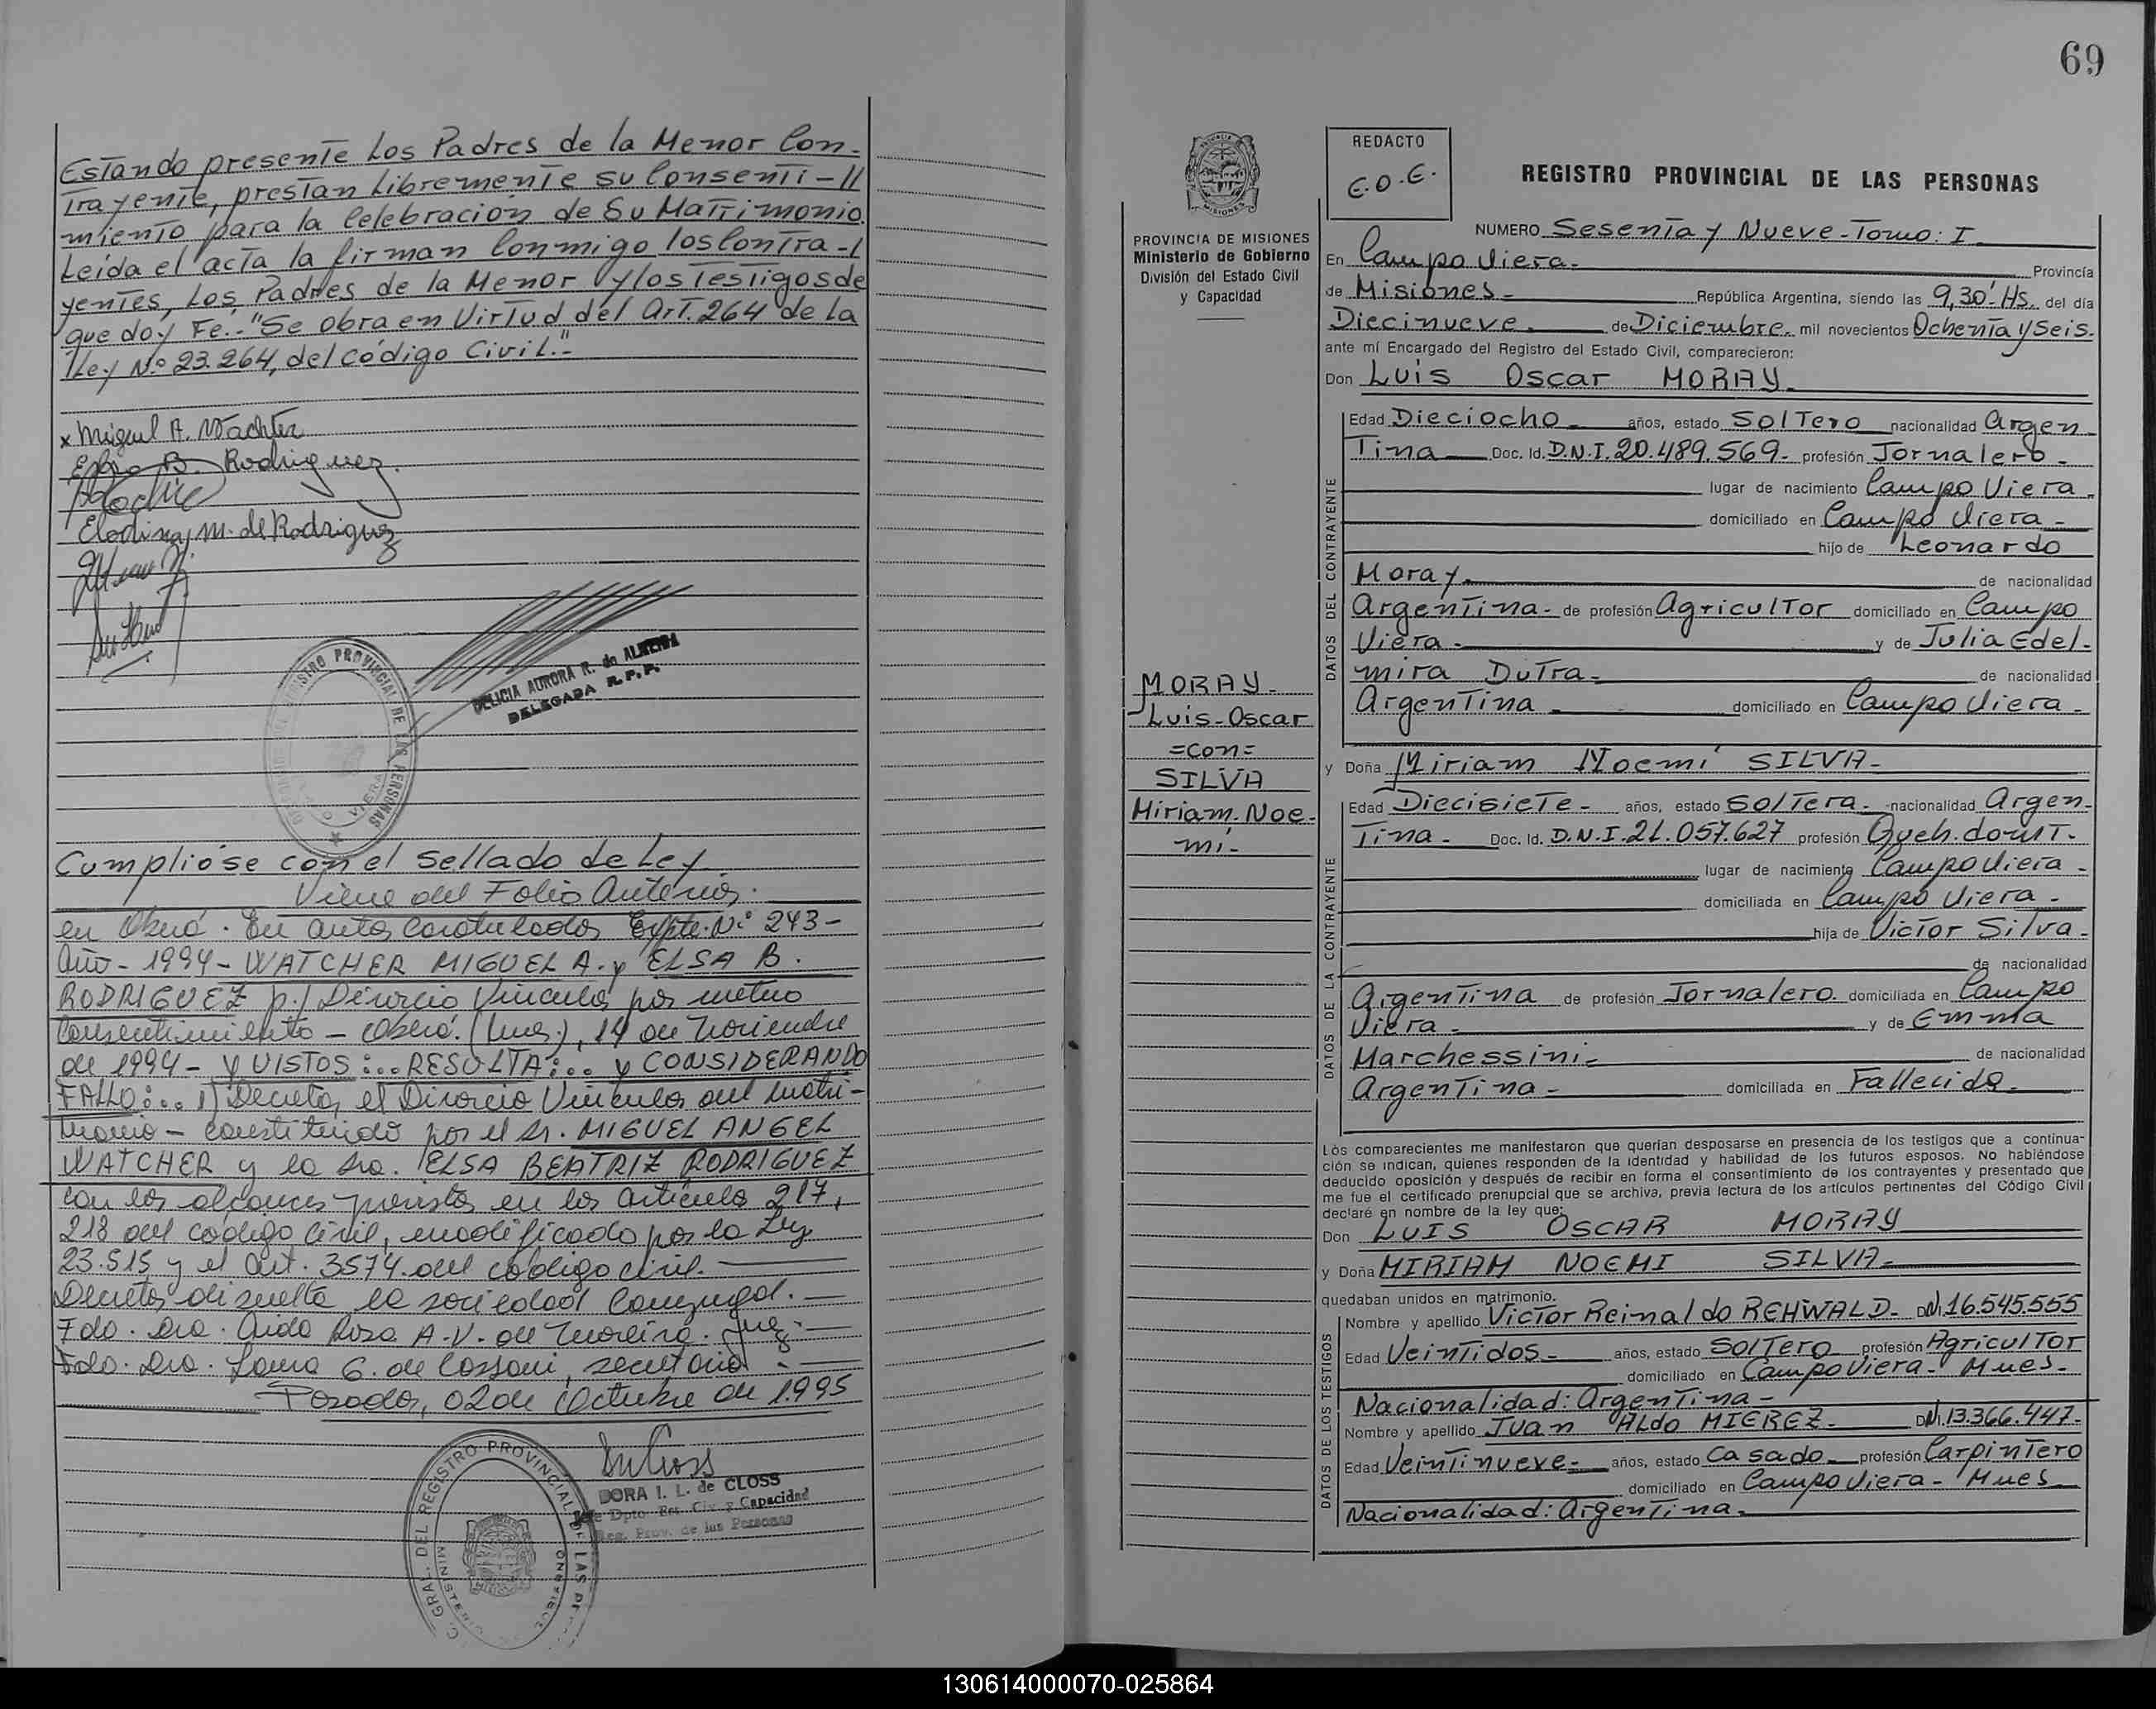 Estando presente Los Padres de la Menor Con-
trayente, prestan Libremente su Consenti-//
miento para la Celebración de Su Matrimonio.
Leída el acta la firman Conmigo los Contra-/
yentes, Los Padres de la Menor y los Testigos de
que doy Fe.- "Se obra en Virtud del Art. 264 de la
Ley Nº 23.264, del Código Civil."
x Miguel A. Wachter
Elsa B. Rodriguez.
Elodina, M. de Rodriguez
DELICIA AURORA R. de ALMEIDA
DELEGADA R.P.P.
REGISTRO PROVINCIAL DE LAS PERSONAS
VIERA
Cumplióse con el sellado de Ley
Viene del Folio Anterior.
en Oberá. En autos caratulados Expte. Nº 243-
Año - 1994 - WATCHER MIGUEL A. y ELSA B.
RODRIGUEZ p:/ Divorcio Vincular por mutuo
Consentimiento - Oberá. (Mnes), 14 de Noviembre
de 1994 - Y VISTOS:...RESULTA:... y CONSIDERANDO
FALLO:... 1) Decretar el Divorcio Vincular del Matri-
monio - constituido por el Sr. MIGUEL ANGEL
WATCHER y la Sra. ELSA BEATRIZ RODRIGUEZ
con los alcances previstos en los artículos 217,
218 del código Civil, modificado por la Ley
23.515 y el Art. 3574 del código civil.
Decretar disuelta la sociedad Conyugal.
Fdo. Dra. Aida Rosa A.V. de Moreira. Juez.
Fdo. Dra. G. de Cassoni, secretaria.
Posadas, 02 de Octubre de 1.995
DORA I. L. de CLOSS
Jefe Dpto. Est. Civ. y Capacidad
Reg. Prov. de las Personas
GRAL. DEL REGISTRO PROVINCIAL DE LAS PE
69
REDACTO
E.O.E.
REGISTRO PROVINCIAL DE LAS PERSONAS
PROVINCIA DE MISIONES
Ministerio de Gobierno
División del Estado Civil
y Capacidad
NUMERO Sesenta y Nueve - Tomo: I
En Campo Viera.- Provincia
de Misiones - República Argentina, siendo las 9,30'- Hs. del día
Diecinueve. de Diciembre. mil novecientos Ochenta y Seis.
ante mí Encargado del Registro del Estado Civil, comparecieron:
Don Luis Oscar MORAY.
DATOS DEL CONTRAYENTE
Edad Dieciocho - años, estado Soltero nacionalidad Argen-
Tina Doc. Id. D.N.I. 20.489.569- profesión Jornalero-
lugar de nacimiento Campo Viera.
domiciliado en Campo Viera-
hijo de Leonardo
Moray. de nacionalidad
Argentina- de profesión Agricultor domiciliado en Campo
Viera. y de Julia Edel-
mira Dutra- de nacionalidad
Argentina - domiciliado en Campo Viera-
MORAY-
Luis-Oscar
=con=
SILVA
Miriam-Noe-
mí-
y Doña Miriam Noemí SILVA-
DATOS DE LA CONTRAYENTE
Edad Diecisiete- años, estado Soltera. nacionalidad Argen-
Tina- Doc. Id. D.N.I. 21.057.627 profesión Queh. domT.
lugar de nacimiento Campo Viera -
domiciliada en Campo Viera -
hija de Victor Silva-
de nacionalidad
Argentina de profesión Jornalero. domiciliada en Campo
Viera- y de Emma
Marchessini- de nacionalidad
Argentina- domiciliada en Fallecida-
Los comparecientes me manifestaron que querían desposarse en presencia de los testigos que a continua-
ción se indican, quienes responden de la identidad y habilidad de los futuros esposos. No habiéndose
deducido oposición y después de recibir en forma el consentimiento de los contrayentes y presentado que
me fue el certificado prenupcial que se archiva, previa lectura de los artículos pertinentes del Código Civil
declaré en nombre de la ley que:
Don LUIS OSCAR MORAY
y Doña MIRIAM NOEMI SILVA-
quedaban unidos en matrimonio.
DATOS DE LOS TESTIGOS
Nombre y apellido Victor Reinaldo REHWALD- DNI. 16.545.555
Edad Veintidos- años, estado Soltero profesión Agricultor
domiciliado en Campo Viera- Mnes-
Nacionalidad: Argentina-
Nombre y apellido Juan Aldo MIEREZ- DNI. 13.366.447-
Edad Veintinueve- años, estado Casado profesión Carpintero
domiciliado en Campo Viera- Mnes
Nacionalidad: Argentina.
130614000070-025864